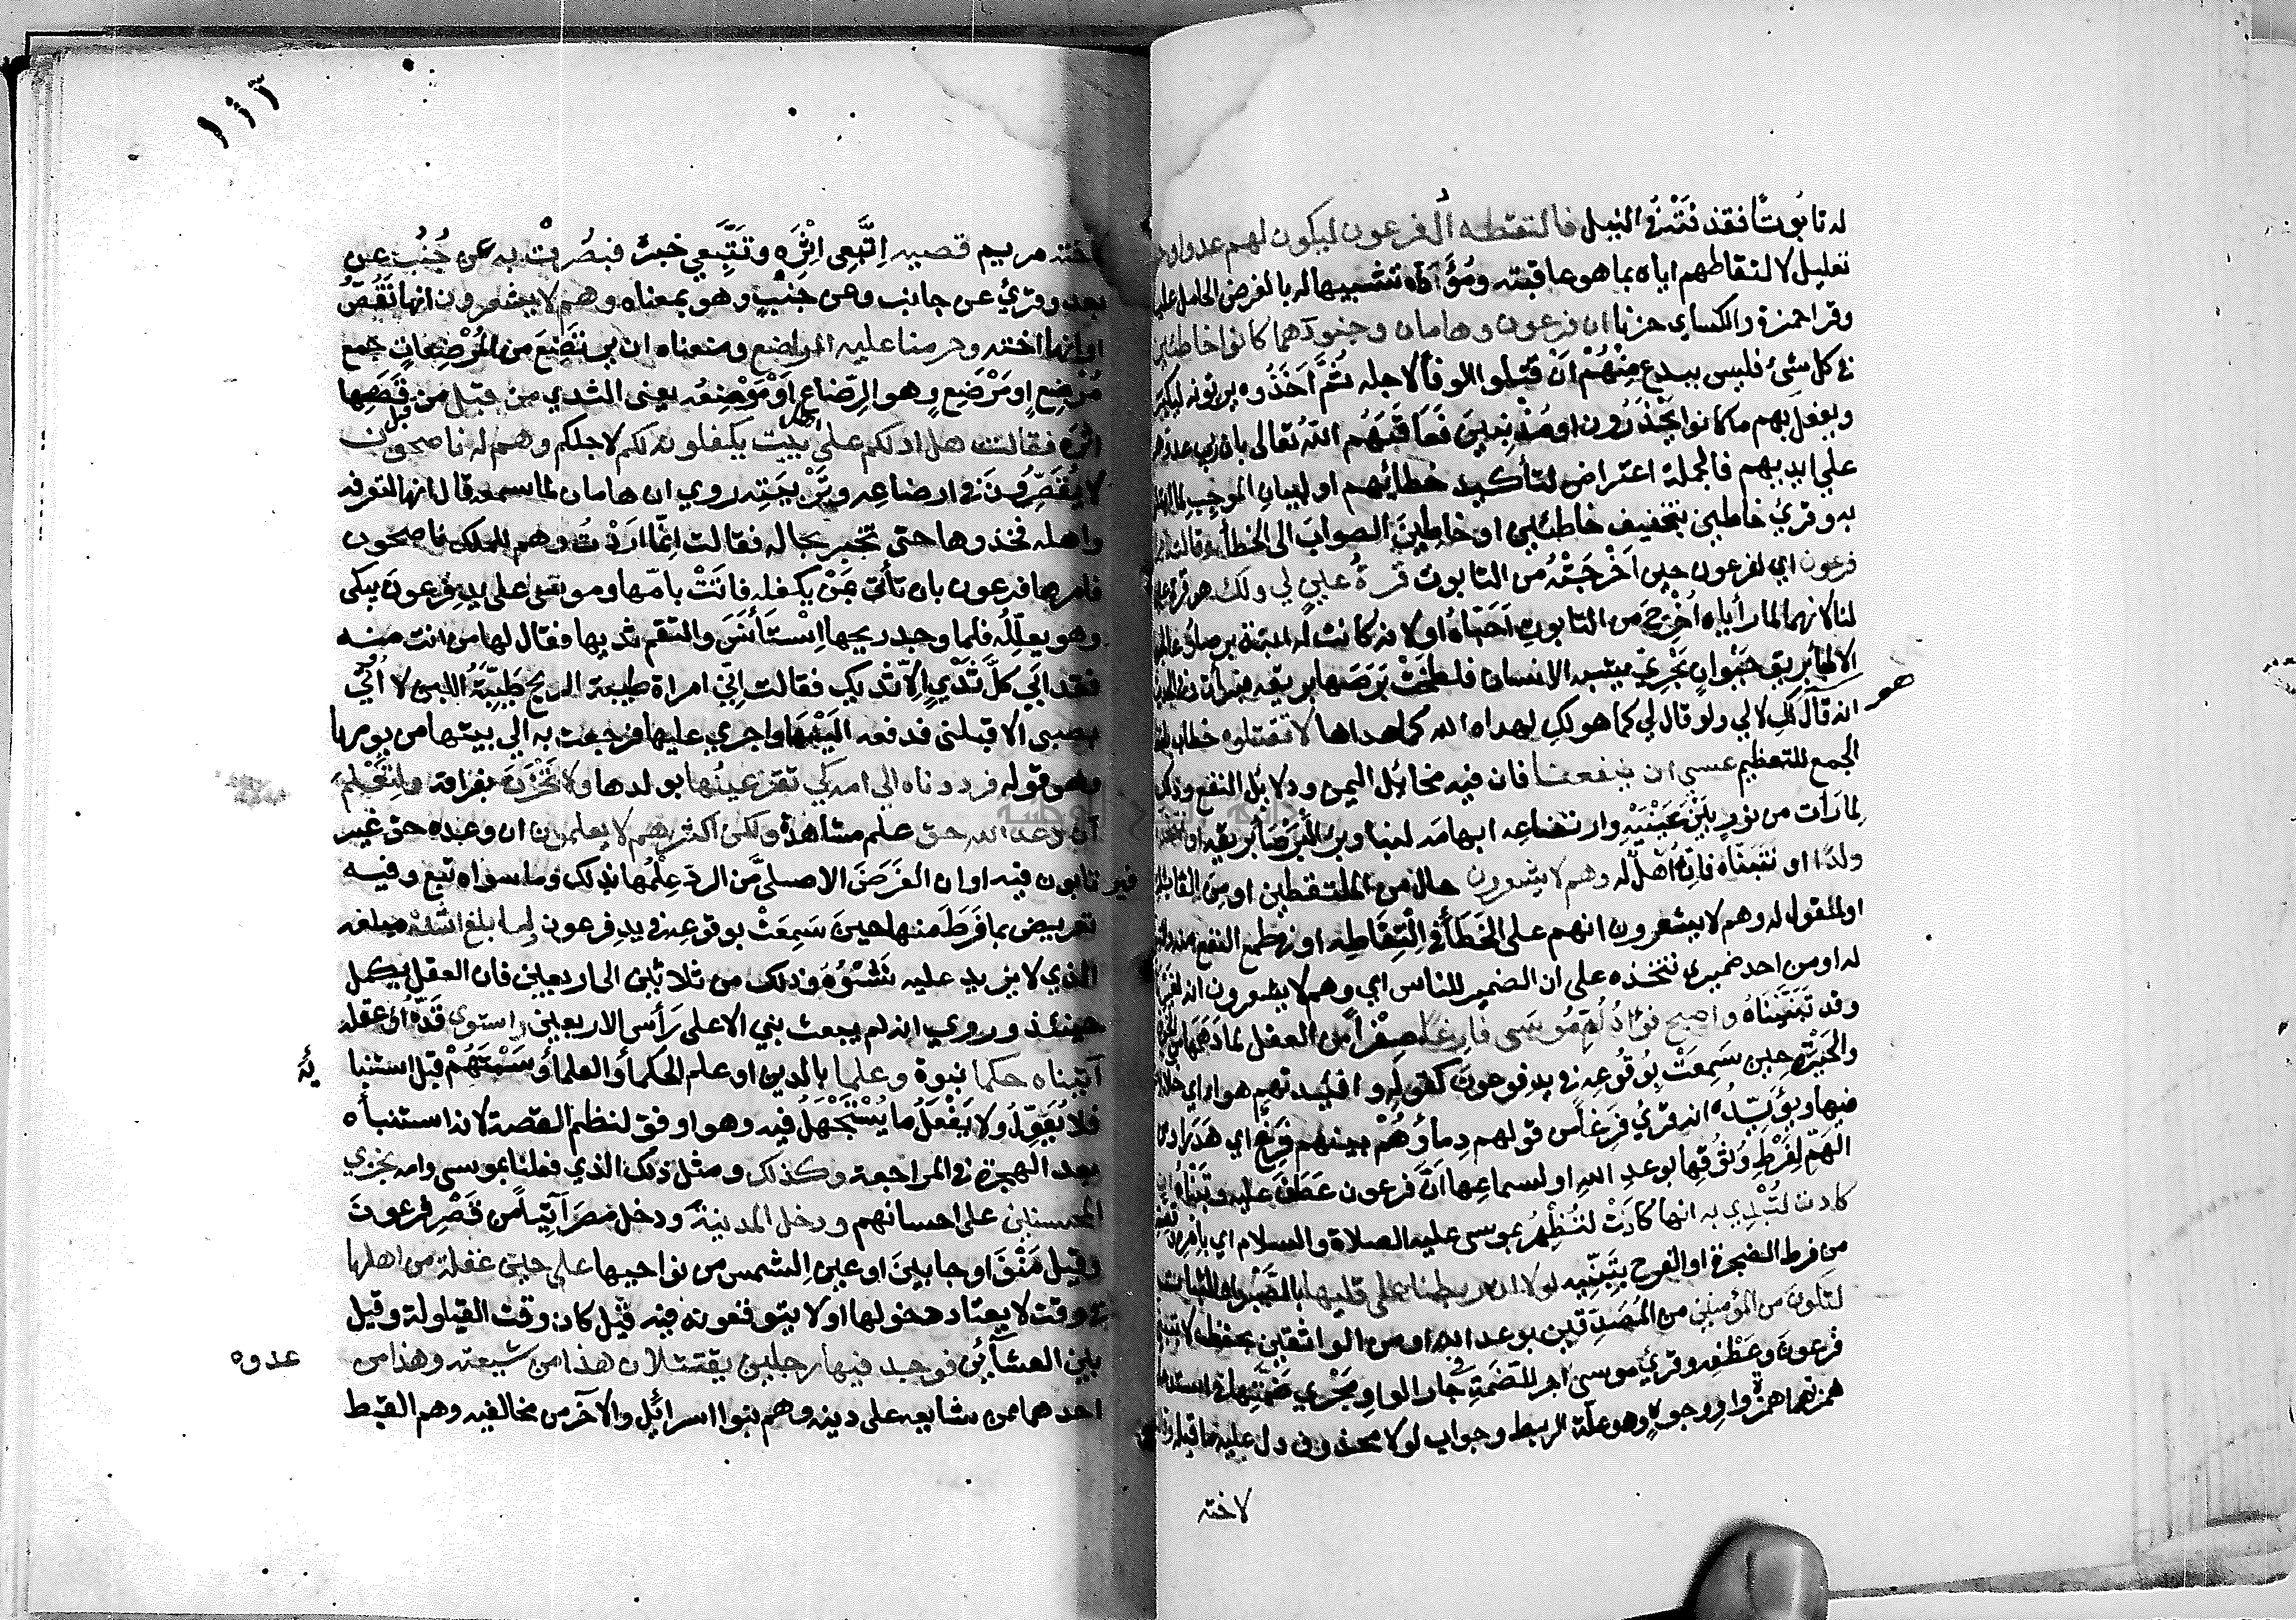 له تابوتًا فقذفته في النيل فالتقطه آل فرعون ليكون لهم عدوا وحز
تعليل لالتقاطهم اياه بما هو عاقبته ومؤداه تشبيها له بالغرض الحامل عليه
وقرا حمزة والكسايي حزنا ان فرعون وهامان وجنودهما كانوا خاطئين
في كل شئ فليس ببدع منهم ان قتلوا الوفا لاجله ثم اخذوه يربونه ليكبر
ويفعل بهم ما كانوا يحذرون او مذنبين فعاقبهم الله تعالى بان ربى عدوهم
علي ايديهم فالجملة اعتراض لتأكيد خطائهم او لبيان الموجب لما
به وقرئ خاطين بتخفيف خاطئين او خاطين الصواب الى الخطأ وقالت
فرعون اي لفرعون حين اخرجته من التابوت قرة عين لي ولك هو قرة عين
لنا لانهما لما رأياه اخرج من التابوت احباه او لانه كانت له ابنة برصاء
الاطبا بريق حيوان بحري يشبه الانسان فلطخت برصها بريقه فبرأت
هو
انه قال لك لا لي ولو قال لي كما هو لك لهداه الله كما هداها لا تقتلوه خطاب
الجمع للتعظيم عسي ان ينفعنا فان فيه مخائل اليمن ودلائل النفع وذلك
لما رأت من نور بين عينيه وارتضاعه ابهامه لبنا وبرء البرصا بريقه او نتخذه
ولدا او نتبناه فانه اهل له وهم لا يشعرون حال من الملتقطين او من القائلة
او المقول له وهم لا يشعرون انهم على الخطأ في التقاطه او في طمع النفع منه
له او من احد ضميري نتخذه على ان الضمير للناس اي وهم لا يشعرون انه لغيرنا
وقد تبنيناه واصبح فؤاد ام موسى فارغا صفرا من العقل لما دهمها من
والحيرة حين سمعت بوقوعه في يد فرعون كقوله وافئدتهم هواء اي خلاء
فيها ويؤيده انه قرئ فرغا من قولهم دماؤهم بينهم فرغ اي هدر او من
الهم لفرط وثوقها بوعد الله او لسماعها ان فرعون عطف عليه وتبناه ان
كادت لتبدي به انها كادت لتظهر بموسى عليه الصلاة والسلام اي بامره
من فرط الضجرة او الفرح بتبنيه لولا ان ربطنا على قلبها بالصبر والثبات
لتكون من المؤمنين من المصدقين بوعد الله او من الواثقين بحفظه لا بتبني
فرعون وعطفه وقرئ موسى اجراء للضمة في جار الواو مجرى ضمتها في استدعاء
همزها همزة واو وجوه وهو علة الربط وجواب لولا محذوف دل عليه ما قبله
لاخته
١٢٢
اخته مريم قصيه اتبعى اثره وتتبعي خبره فبصرت به عن جنب عن
بعد وقرئ عن جانب وعن جنب وهو بمعناه وهم لا يشعرون انها تقص
او انها اخته وحرمنا عليه المراضع ومنعناه ان يرتضع من المرضعات جمع
مرضع او مرضع وهو الرضاع او موضعه يعني الثدي من قبل من قبل قصصها
اثره فقالت هل ادلكم على اهل بيت يكفلونه لكم لاجلكم وهم له ناصحون
لا يقصرون في ارضاعه وتربيته روي ان هامان لما سمعه قال انها لتعرفه
واهله فخذوها حتى تخبر بحاله فقالت انما اردت وهم للملك ناصحون
فامرها فرعون بان تأتي بمن يكفله فاتت بامها وموسى على يد فرعون يبكي
وهو يعلله فلما وجد ريحها استأنس والتقم ثديها فقال لها من انت منه
فقد ابى كل ثدي الا ثديك فقالت اني امراة طيبة الريح طيبة اللبن لا أوتي
بصبي الا قبلني فدفعه اليها واجري عليها فرجعت به الي بيتها من يومها
وهو قوله فرددناه الي امه كي تقر عينها بولدها ولا تحزن بفراقه ولتعلم
ان وعد الله حق علم مشاهدة ولكن اكثرهم لا يعلمون ان وعده حق غير
فير تابون فيه او ان الغرض الاصلي من الرد علمها بذلك وما سواه تبع وفيه
تعريض بما فرط منها حين سمعت بوقوعه في يد فرعون ولما بلغ اشده مبلغه
الذي لا يزيد عليه نشؤه وذلك من ثلاثين الى اربعين فان العقل يكمل
حينئذ وروي انه لم يبعث نبي الا على رأس الاربعين واستوى قده او عقله
آتيناه حكما نبوة وعلما بالدين او علم الحكما والعلما وسمتهم قبل استنبا
ئه
فلا يقول ولا يفعل ما يستجهل فيه وهو اوفق لنظم القصة لانه استنبأه
بعد الهجرة في المراجعة وكذلك ومثل ذلك الذي فعلنا بموسى وامه نجزي
المحسنين على احسانهم ودخل المدينة ودخل مصر آتيا من قصر فرعون
وقيل منف او حابين او عين الشمس من نواحيها على حين غفلة من اهلها
في وقت لا يعتاد دخولها او لا يتوقعونه فيه قيل كان وقت القيلولة وقيل
بين العشائين فوجد فيها رجلين يقتتلان هذا من شيعته وهذا من عدوه
احدهما ممن شايعه على دينه وهم بنوا اسرائيل والآخر من مخالفيه وهم القبط